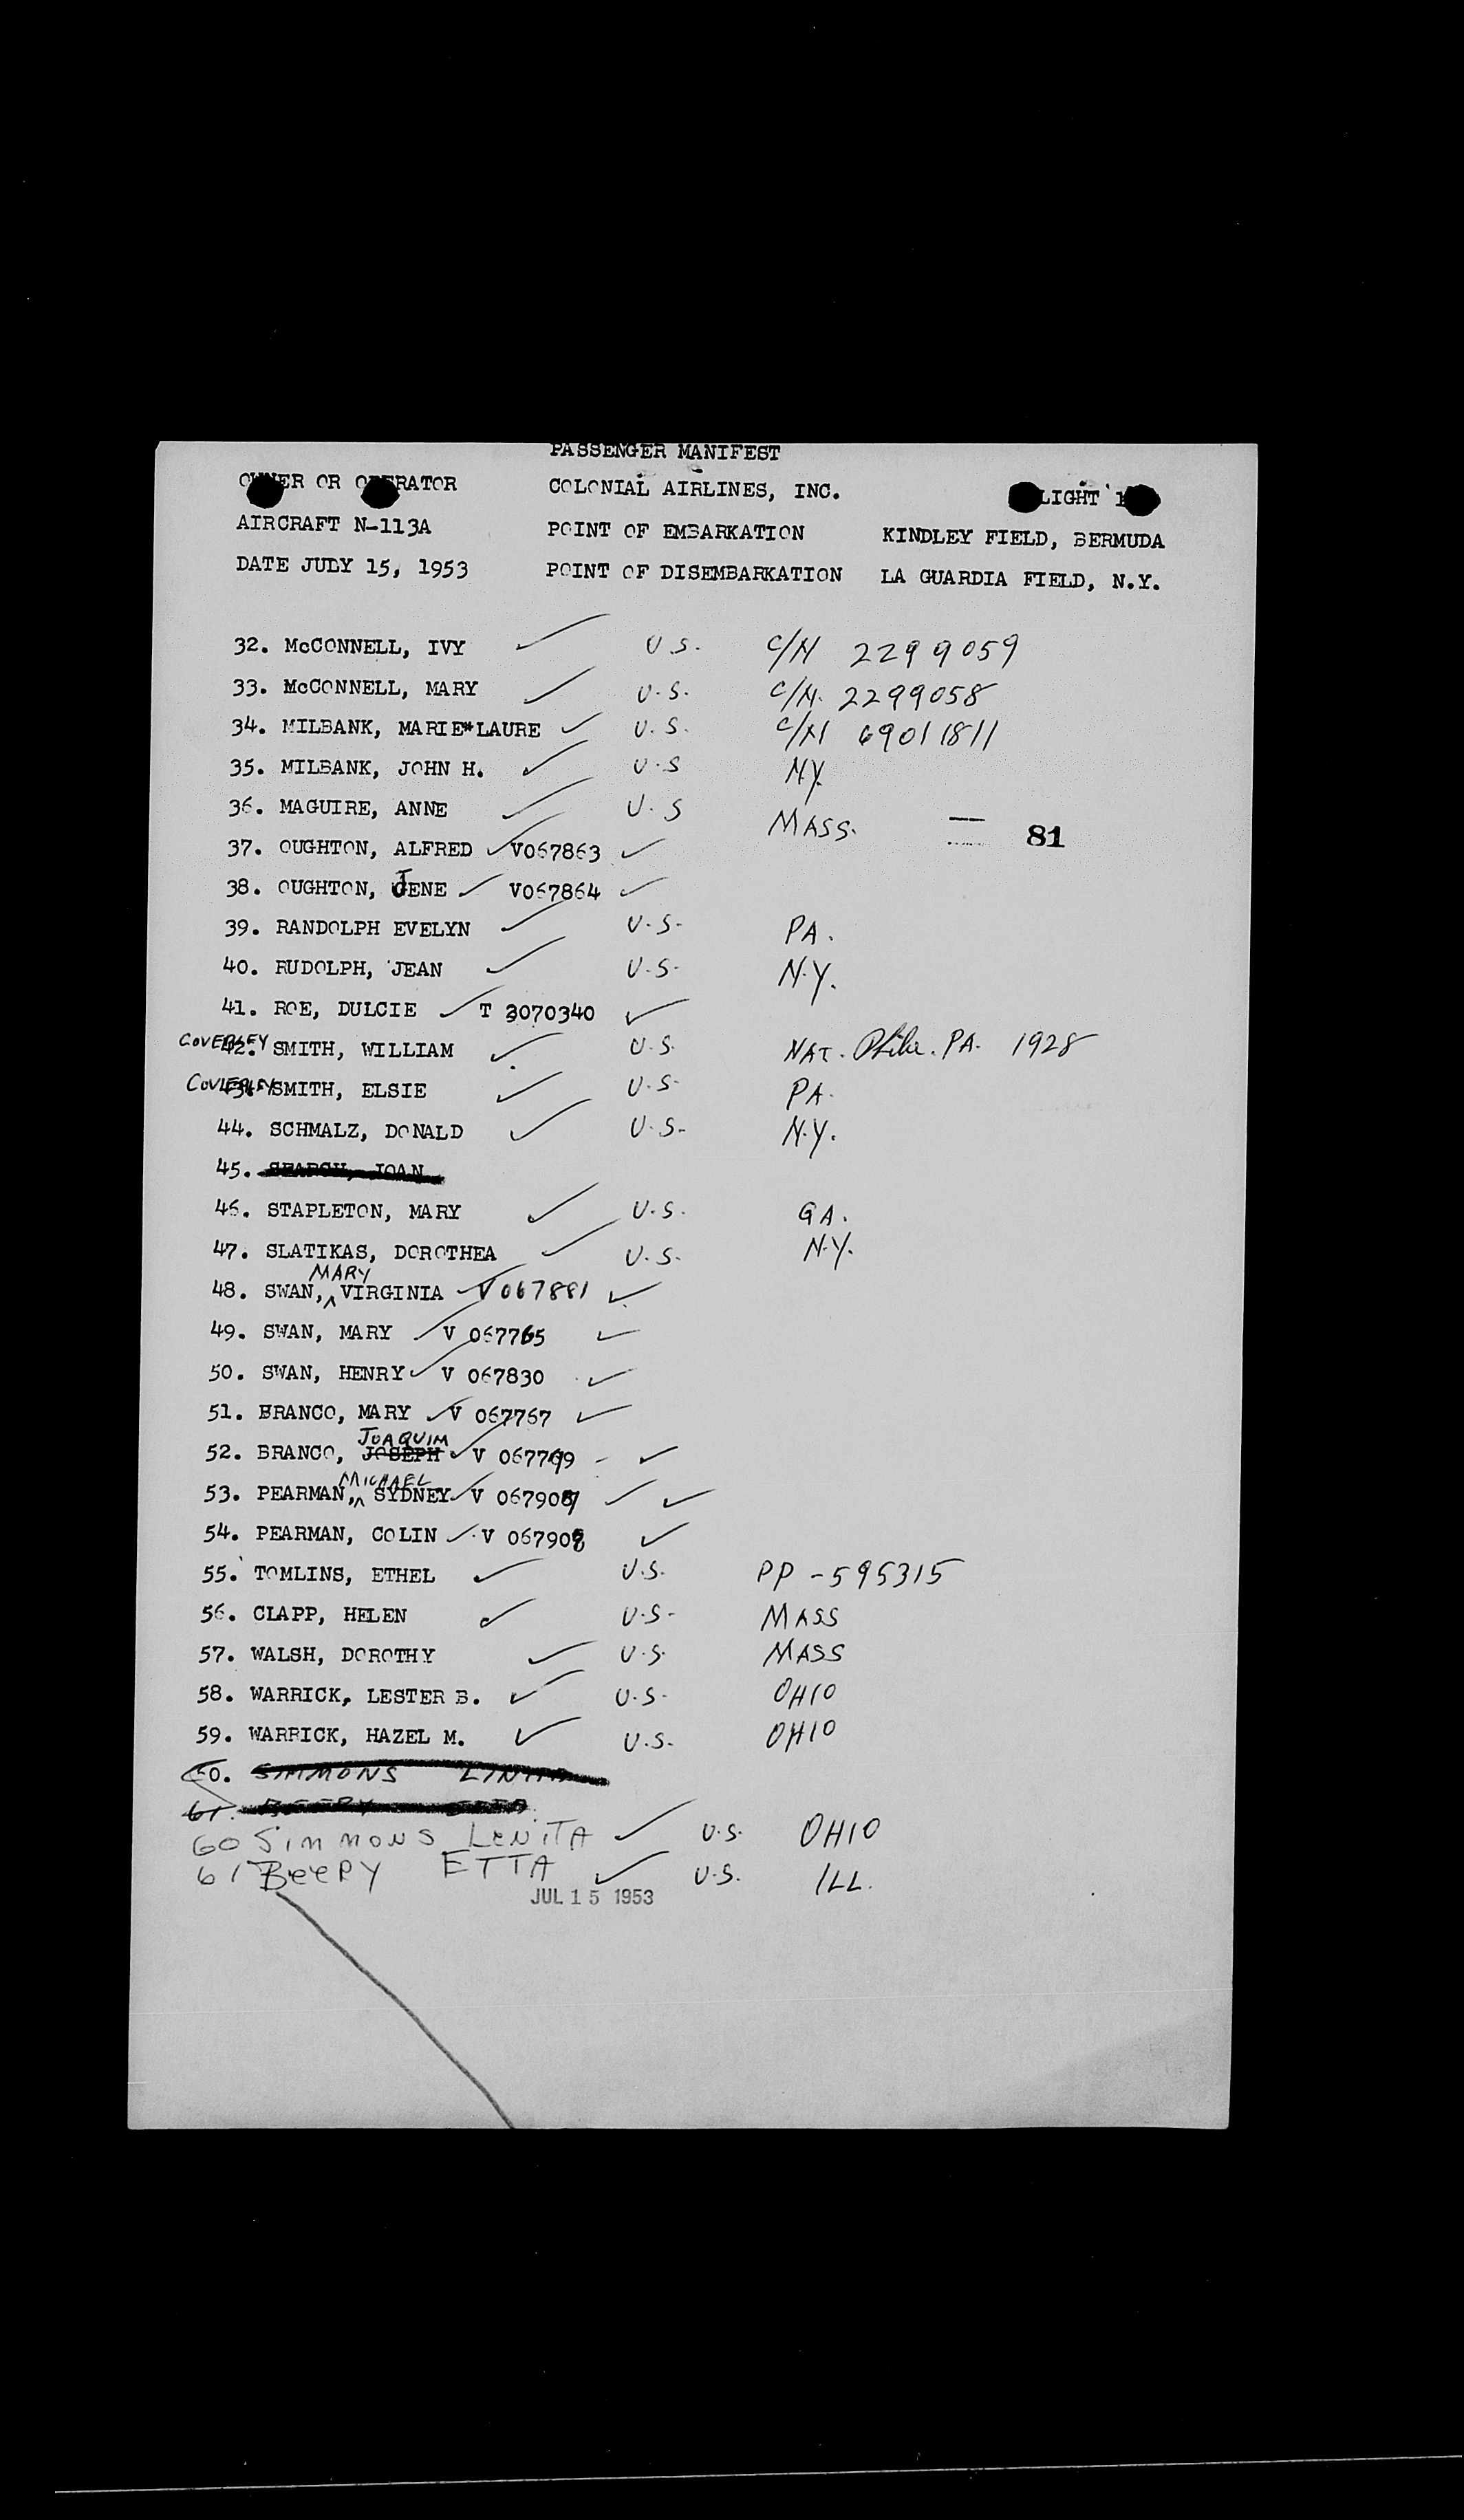 PASSENGER MANIFEST
OWNER OR OPERATOR COLONIAL AIRLINES, INC. FLIGHT
AIRCRAFT N-113A POINT OF EMBARKATION KINDLEY FIELD, BERMUDA
DATE JULY 15, 1953 POINT OF DISEMBARKATION LA GUARDIA FIELD, N.Y.
32. McCONNELL, IVY ✓ U.S. C/N 2299059
33. McCONNELL, MARY ✓ U.S. C/N. 2299058
34. MILBANK, MARIE*LAURE ✓ U.S. C/N 69011811
35. MILBANK, JOHN H. ✓ U.S N.Y.
36. MAGUIRE, ANNE ✓ U.S MASS.
81
37. OUGHTON, ALFRED ✓ V067863 ✓
38. OUGHTON, JENE ✓ V067864 ✓
39. RANDOLPH EVELYN ✓ U.S. PA.
40. RUDOLPH, JEAN ✓ U.S. N.Y.
41. ROE, DULCIE ✓ T 3070340 ✓
42. COVERLEY SMITH, WILLIAM ✓ U.S. NAT. Phila. PA. 1928
43. COVERLEY SMITH, ELSIE ✓ U.S. PA.
44. SCHMALZ, DONALD ✓ U.S. N.Y.
45. SEARCH, JOAN
46. STAPLETON, MARY ✓ U.S. GA.
47. SLATIKAS, DOROTHEA ✓ U.S. N.Y.
48. SWAN, MARY VIRGINIA ✓ V067881 ✓
49. SWAN, MARY ✓ V 067765 ✓
50. SWAN, HENRY ✓ V 067830 ✓
51. BRANCO, MARY ✓ V 067767 ✓
52. BRANCO, JOSEPH JOAQUIM ✓ V 067769 - ✓
53. PEARMAN, MICHAEL SYDNEY ✓ V 067907 ✓ ✓
54. PEARMAN, COLIN ✓ V 067908 ✓
55. TOMLINS, ETHEL ✓ U.S. PP-595315
56. CLAPP, HELEN ✓ U.S. MASS
57. WALSH, DOROTHY ✓ U.S. MASS
58. WARRICK, LESTER B. ✓ U.S. OHIO
59. WARRICK, HAZEL M. ✓ U.S. OHIO
60. SIMMONS
61. BEERY
60 SIMMONS LENITA ✓ U.S. OHIO
61 BEERY ETTA ✓ U.S. ILL.
JUL 15 1953